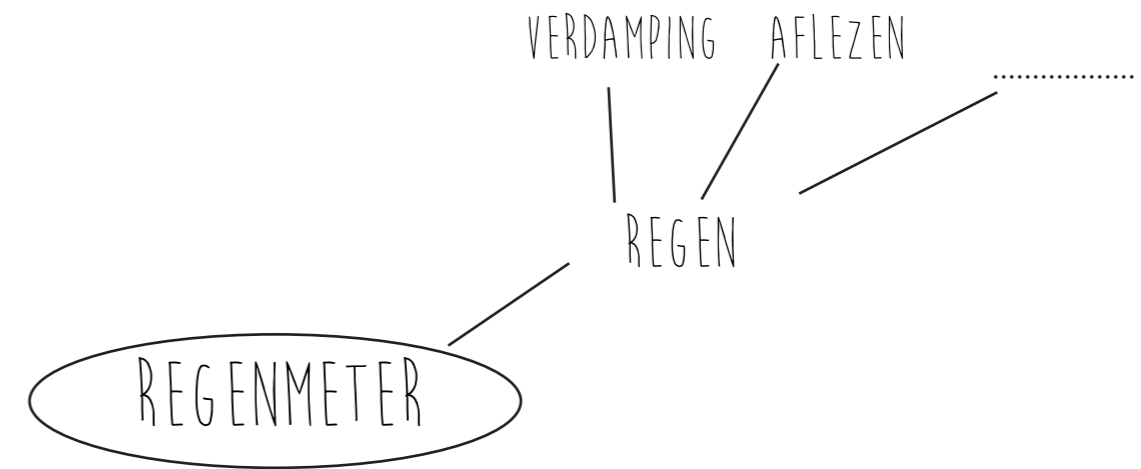 VERDAMPING AFLEZEN
..................
REGEN
REGENMETER